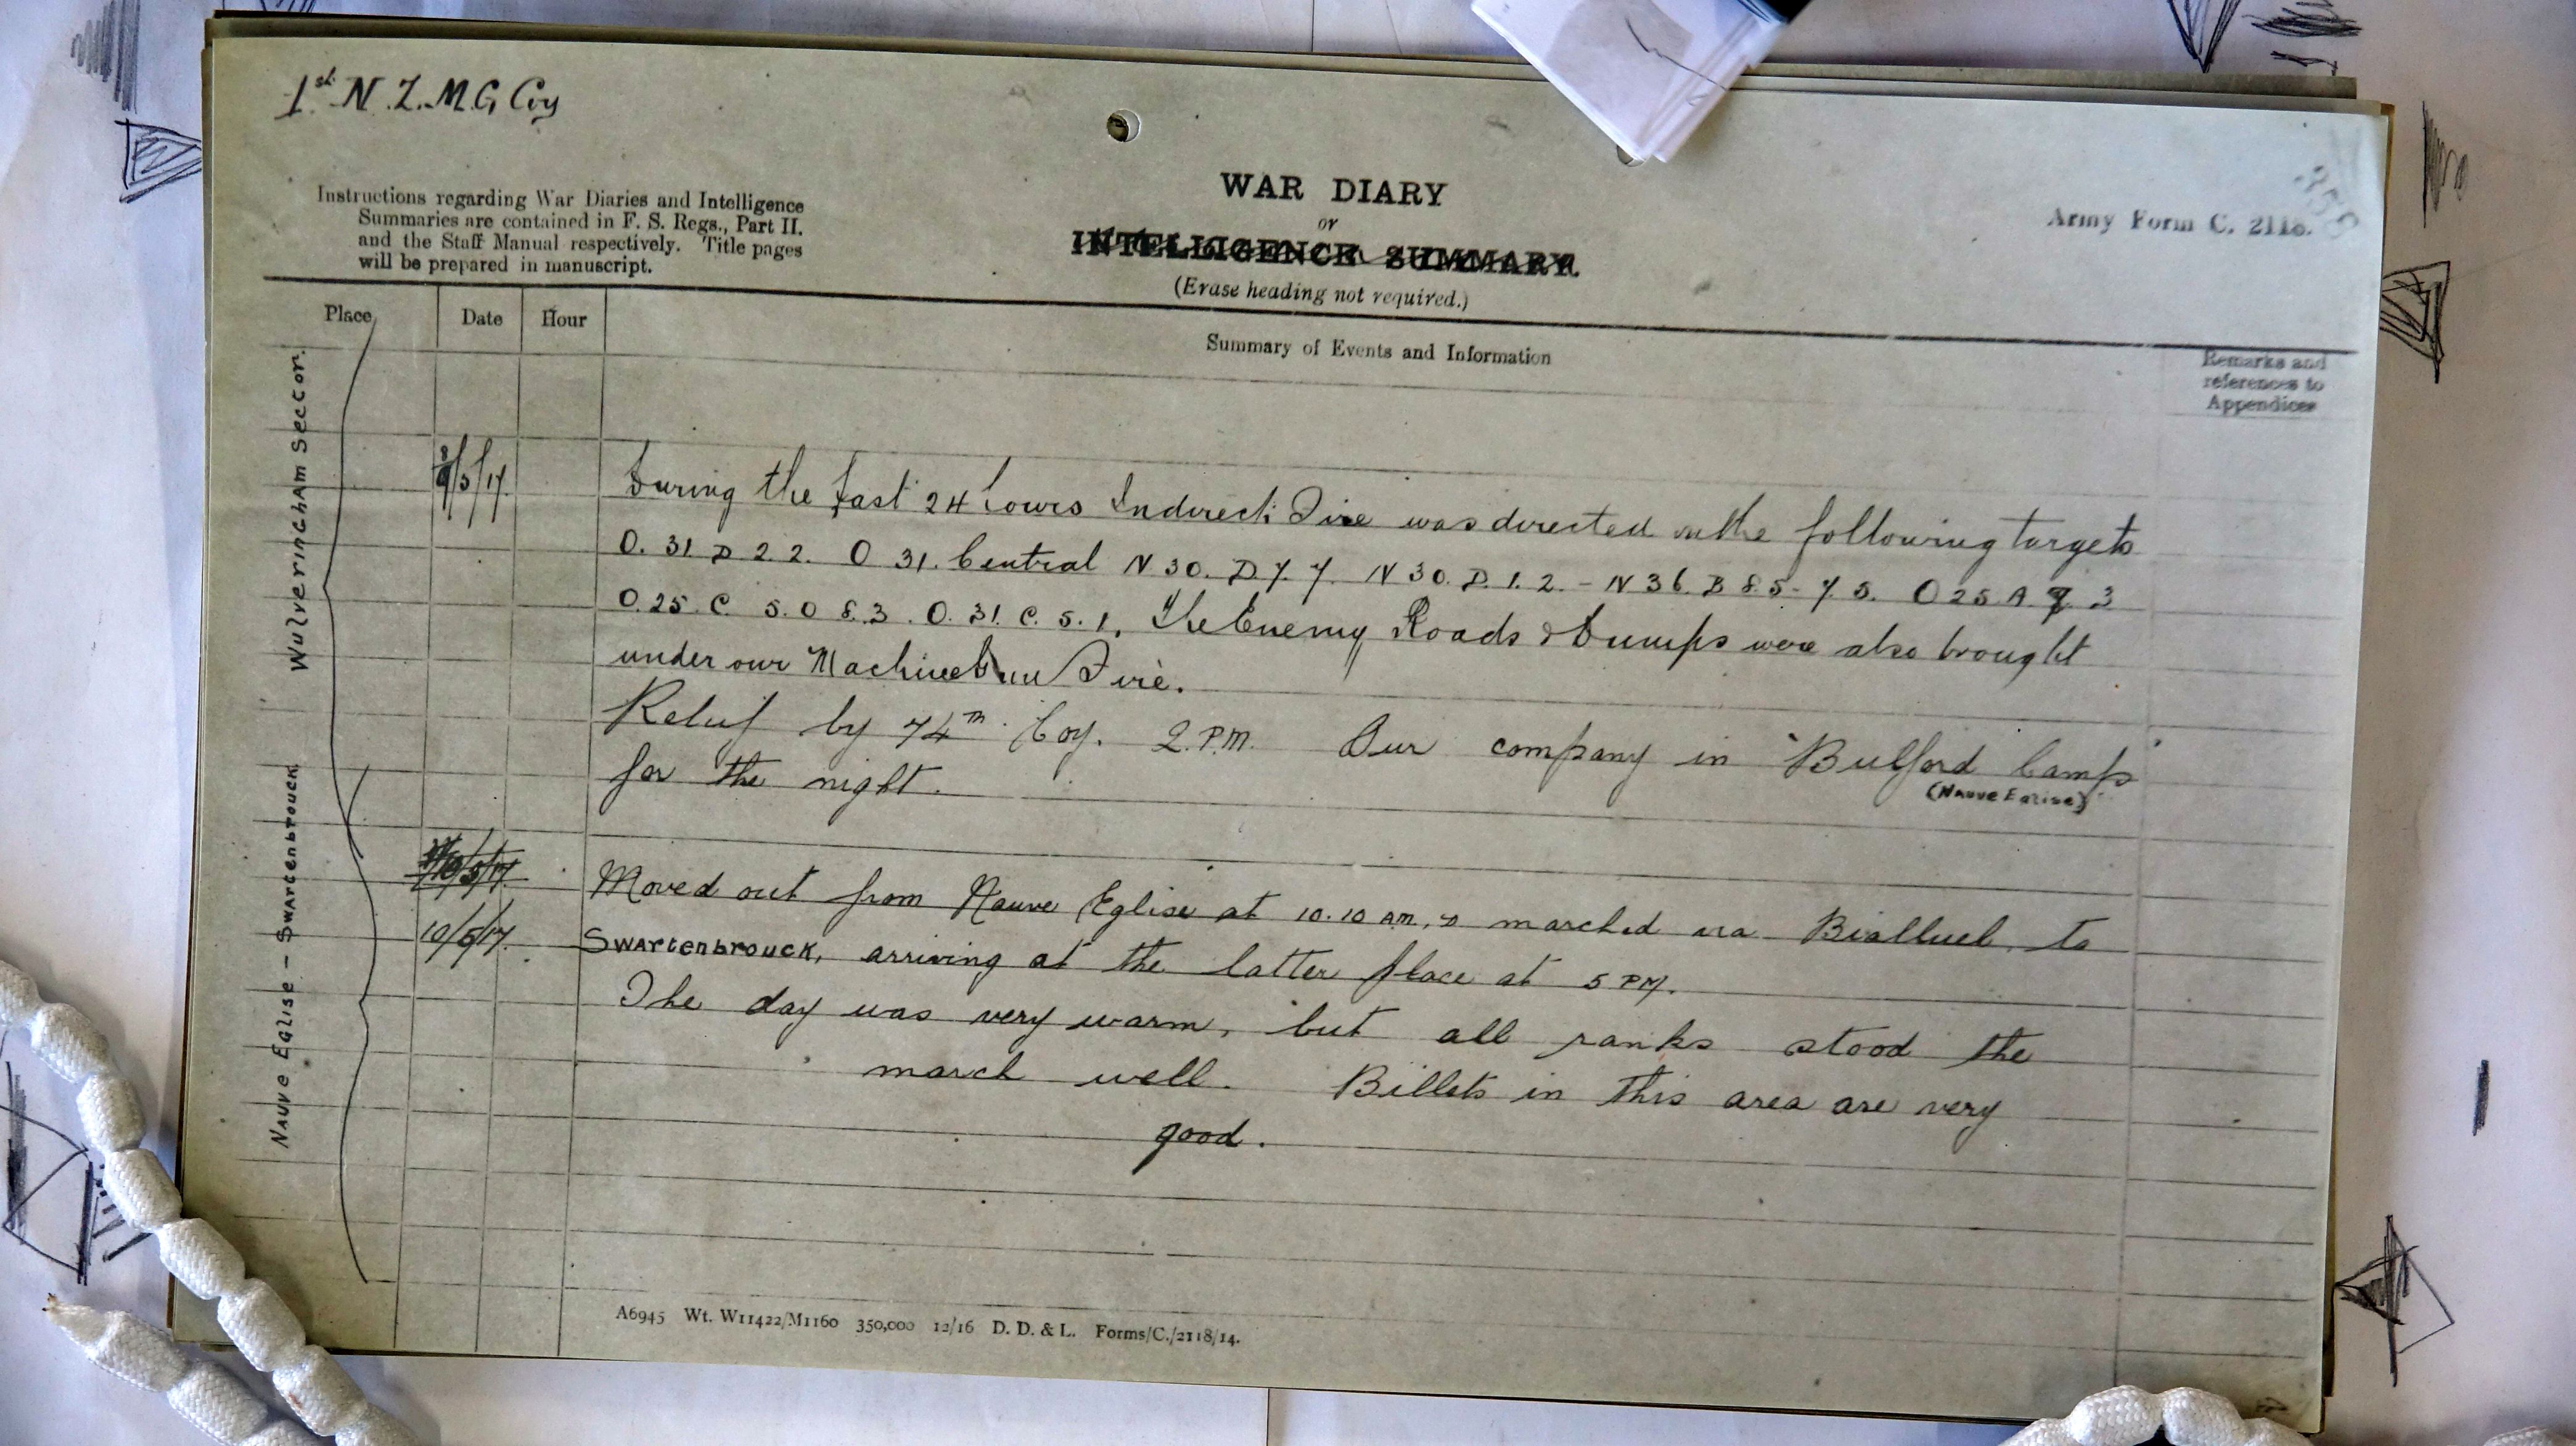 1st N.Z.M.G. Coy
Instructions regarding War Diaries and Intelligence
Summaries are contained in F. S. Regs., Part II.
and the Staff Manual respectively. Title pages
will be prepared in manuscript.
WAR DIARY
or
INTELLIGENCE SUMMARY.
(Erase heading not required.)
Army Form C. 2118.
Place
Date
Hour
Summary of Events and Information
Remarks and
references to
Appendices
Wulveringham Sector.
/5/17.
During the Last 24 hours Indirect Fire was directed on the following targets
O. 31. D 2 2. O 31. Central N 30. D. 7. 7. N 30. D. 1. 2. - N 36. B 8.5 - 7.5. O 25 A 3
O.25. C 5.0 8.3. O. 31. C. 5. 1. The Enemy Roads & Dumps were also brought
under our Machine Gun Fire.
Relief by 74th Coy. 2. P.M. Our company in "Bulford Camp"
(Nauve Eglise)
for the night.
Nauve Eglise - Swartenbrouck
10/5/17.
10/5/17.
Moved out from Nauve Eglise at 10.10 AM, & marched via Bialluel, to
Swartenbrouck, arriving at the latter place at 5 PM.
The day was very warm, but all ranks stood the
march well. Billets in this area are very
good.
A6945 Wt. W11422/M1160 350,000 12/16 D. D. & L. Forms/C./2118/14.